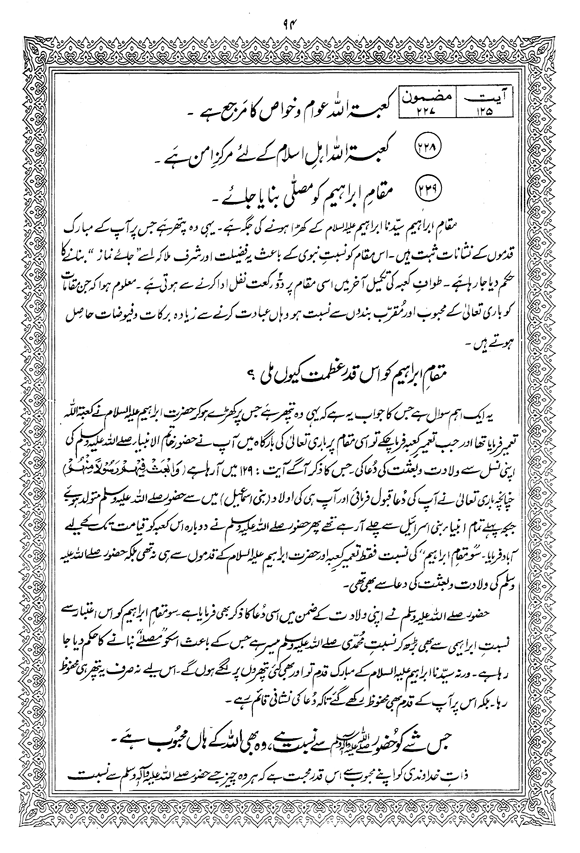 ۹۴
آیت ۱۲۵ مضمون ۲۲۷ کعبۃ اللہ عوام و خواص کا مرجع ہے ۔
۲۲۸ کعبۃ اللہ اہلِ اسلام کے لئے مرکزِ امن ہے ۔
۲۲۹ مقامِ ابراہیم کو مصلّٰی بنایا جائے ۔
مقامِ ابراہیم سیّدنا ابراہیم علیہ السلام کے کھڑا ہونے کی جگہ ہے ۔ یہی وہ پتھر ہے جس پر آپ کے مبارک
قدموں کے نشانات ثبت ہیں ۔ اس مقام کو نسبتِ نبوی کے باعث یہ فضیلت اور شرف ملا کہ اسے ”جائے نماز“ بنانے کا
حکم دیا جا رہا ہے ۔ طوافِ کعبہ کی تکمیل آخر میں اسی مقام پر دو رکعت نفل ادا کرنے سے ہوتی ہے ۔ معلوم ہوا کہ جن مقامات
کو باری تعالیٰ کے محبوب اور مُقرّب بندوں سے نسبت ہو وہاں عبادت کرنے سے زیادہ برکات و فیوضات حاصل
ہوتے ہیں ۔
مقامِ ابراہیم کو اس قدر عظمت کیوں ملی ؟
یہ ایک اہم سوال ہے جس کا جواب یہ ہے کہ یہی وہ پتھر ہے جس پر کھڑے ہو کر حضرت ابراہیم علیہ السلام نے کعبۃ اللہ
تعمیر فرمایا تھا اور جب تعمیرِ کعبہ فرما چکے تو اسی مقام پر باری تعالیٰ کی بارگاہ میں آپ نے حضور خاتم الانبیاء صلے اللہ علیہ وسلم کی
اپنی نسل سے ولادت و بعثت کی دُعا کی ۔ جس کا ذکر آگے آیت : ۱۲۹ میں آ رہا ہے (وَابْعَثْ فِیْهِمْ رَسُوْلًا مِّنْهُمْ)
چنانچہ باری تعالیٰ نے آپ کی دعا قبول فرمائی اور آپ ہی کی اولاد (بنی اسماعیل) میں سے حضور صلے اللہ علیہ وسلم متولد ہوئے
جبکہ پہلے تمام انبیاء بنی اسرائیل سے چلے آ رہے تھے پھر حضور صلے اللہ علیہ وسلم نے دوبارہ اس کعبہ کو قیامت تک کے لیے
آباد فرمایا ۔ سو مقامِ ابراہیم کی نسبت فقط تعمیرِ کعبہ اور حضرت ابراہیم علیہ السلام کے قدموں سے ہی نہ تھی بلکہ حضور صلے اللہ علیہ
وسلم کی ولادت و بعثت کی دعا سے بھی تھی ۔
حضور صلے اللہ علیہ وسلم نے اپنی ولادت کے ضمن میں اسی دُعا کا ذکر بھی فرمایا ہے ۔ سو مقامِ ابراہیم کو اس اعتبار سے
نسبتِ ابراہیمی سے بھی بڑھ کر نسبتِ محمدی صلے اللہ علیہ وسلم میسر ہے جس کے باعث اسکو مصلّے بنانے کا حکم دیا جا
رہا ہے ۔ ورنہ سیّدنا ابراہیم علیہ السلام کے مبارک قدم تو اور بھی کئی پتھروں پر لگے ہوں گے ۔ اس لیے نہ صرف یہ پتھر ہی محفوظ
رہا ۔ بلکہ اس پر آپ کے قدم بھی محفوظ رکھے گئے تاکہ دُعا کی نشانی قائم رہے ۔
جس شے کو حضور صلی اللہ علیہ وآلہ وسلم سے نسبت ہے ، وہ بھی اللہ کے ہاں محبوب ہے ۔
ذاتِ خداوندی کو اپنے محبوب سے اس قدر محبت ہے کہ ہر وہ چیز جسے حضور صلے اللہ علیہ وآلہ وسلم سے نسبت